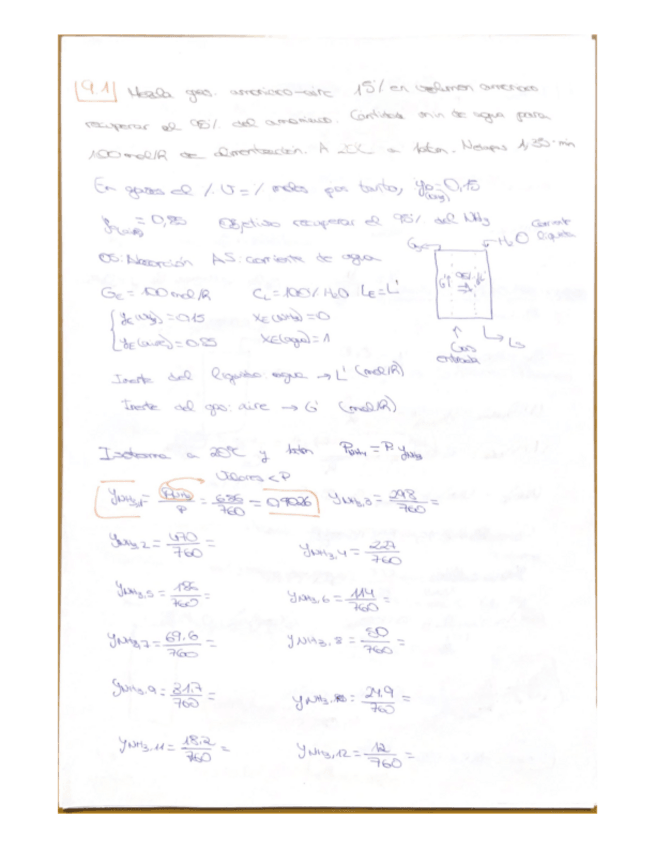 9.1 Mezcla gas. amoniaco-aire 15% en volumen amoniaco
recuperar el 95% del amoniaco. Cantidad min de agua para
100 mol/h de alimentación. A y 1 atm. 1,35·min
En gases el % V = % moles por tanto, y0 = 0,15
= 0,85 Objetivo recuperar el 95% del NH3
H2O Corriente líquida
OS: Absorción AS: corriente de agua
GE = 100 mol/h CL = 100% H2O LE = L'
yE(NH3) = 0.15 xE(NH3) = 0
yE(aire) = 0.85 xE(agua) = 1
Gas entrada
Inerte del líquido: agua → L' (mol/h)
Inerte del gas: aire → G' (mol/h)
Isoterma a 20ºC y 1 atm PNH3 = P·yNH3
Valores < P
yNH3,1 = PNH3/P = 686/760 = 0,9026 yNH3,3 = 298/760 =
yNH3,2 = 470/760 = yNH3,4 = 227/760
yNH3,5 = /760 = yNH3,6 = 114/760 =
yNH3,7 = 69.6/760 = yNH3,8 = 50/760 =
yNH3,9 = 31.7/760 = yNH3,10 = 24.9/760 =
yNH3,11 = 18.2/760 = yNH3,12 = 12/760 =